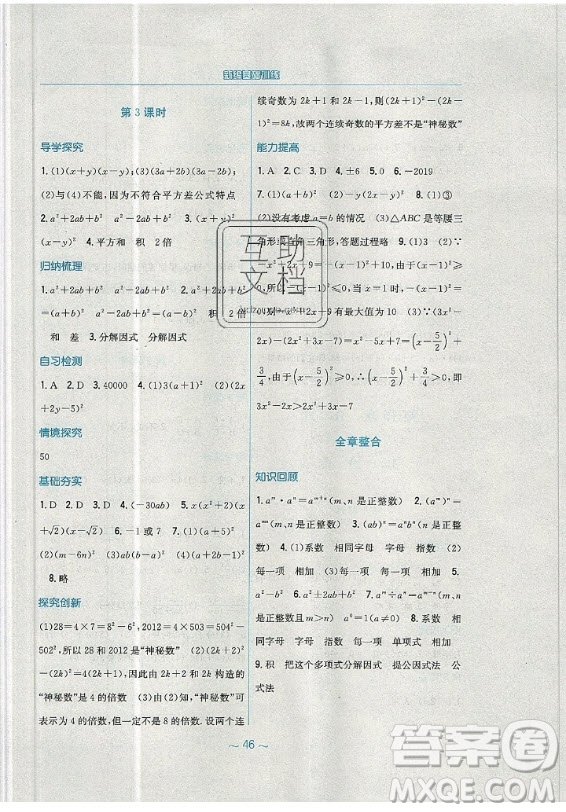 新编基础训练
第3课时
导学探究
1.(1)(x+y)(x-y);(3)(3a+2b)(3a-2b);
(2)与(4)不能,因为不符合平方差公式特点
2. a²+2ab+b² a²-2ab+b² 3.(x+y)²
(x-y)² 4.平方和 积 2倍
归纳梳理
1. a²+2ab+b² a²-2ab+b² 2. a²+2ab
+b² a²-2ab+b² (a+b)² (a-b)² 积 2倍
和 差 3.分解因式 分解因式
自习检测
1. A 2. D 3. 40000 4.(1)3(a+1)² (2)(2x
+2y-5)²
情境探究
50
基础夯实
1. D 2. D 3. D 4.(-30ab) 5. x(x²+2)(x
+√2)(x-√2) 6. -1或7 7.(1)(5+a)²
(2)(m-6n)² (3)ab(b-a)² (4)(a+b)²(a-b)²
8.略
探究创新
(1)28=4×7=8²-6²,2012=4×503=504²-
502²,所以28和2012是“神秘数” (2)(2k+
2)²-(2k)²=4(2k+1),因此由2k+2和2k构造的
“神秘数”是4的倍数 (3)由(2)知,“神秘数”可
表示为4的倍数,但一定不是8的倍数.设两个连
续奇数为2k+1和2k-1,则(2k+1)²-(2k-
1)²=8k,故两个连续奇数的平方差不是“神秘数”
能力提高
1. A 2. C 3. D 4. ±6 5. 0 6. -2019
7.(1)(a+b)² (2)-y(2x-y)² 8.(1)③
(2)没有考虑a=b的情况 (3)△ABC是等腰三
角形或直角三角形,答题过程略 9.(1)3 (2)∵
-x²+2x-9=-(x-1)²+10,由于(x-1)²≥
0,所以-(x-1)²≤0,当x=1时,-(x-1)²=
2x-9有最大值为10 (3)∵(3x²-
2x)-(2x²+3x-7)=x²-5x+7=(x-5/2)²+
3/4,由于(x-5/2)²≥0,∴(x-5/2)²+3/4>0,即
3x²-2x>2x²+3x-7
全章整合
知识回顾
1. aᵐ·aⁿ=aᵐ⁺ⁿ(m、n是正整数) 2.(aᵐ)ⁿ=
aᵐⁿ(m、n是正整数) 3.(ab)ⁿ=aⁿbⁿ(n是正整
数) 4.(1)系数 相同字母 字母 指数 (2)
每一项 相加 (3)每一项 每一项 相加 5.
a²-b² 6. a²±2ab+b² 7. aᵐ÷aⁿ=aᵐ⁻ⁿ(m、n
是正整数,m>n) a⁰=1(a≠0) 8.(1)系数 相
同字母 字母 指数 每一项 单项式 相加
9.积 把这个多项式分解因式 提公因式法 公
式法
~ 46 ~
互助
文档
答案圈
MXQE.COM